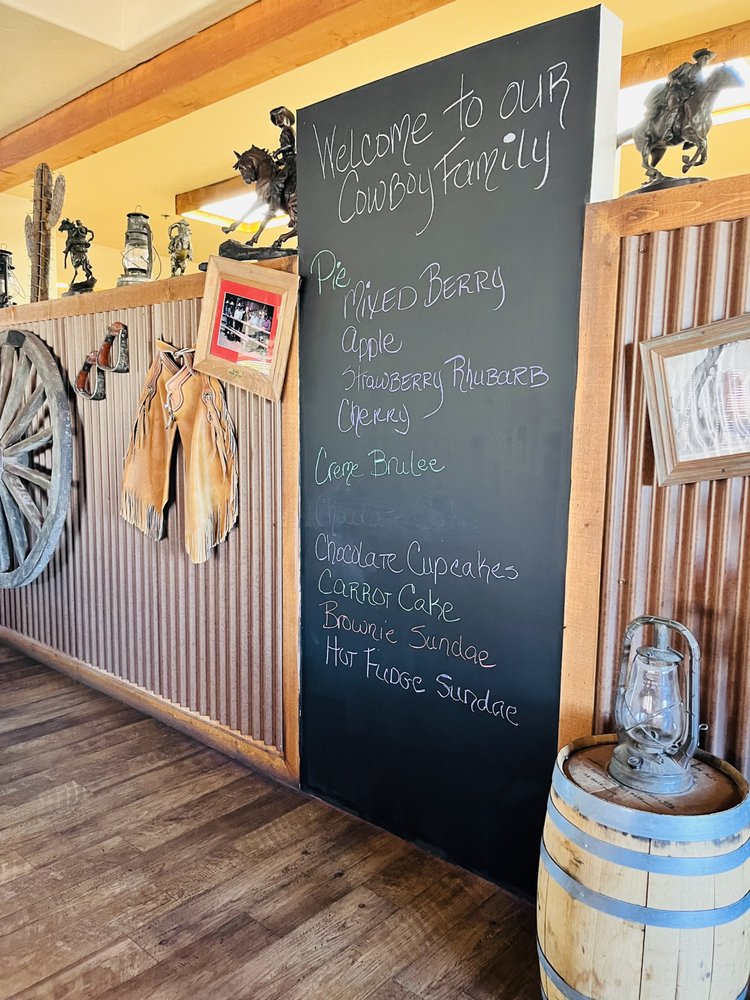 Welcome to our
Cowboy Family
Pie
Mixed Berry
Apple
Strawberry Rhubarb
Cherry
Creme Brulee
Chocolate Cake
Chocolate Cupcakes
Carrot Cake
Brownie Sundae
Hot Fudge Sundae